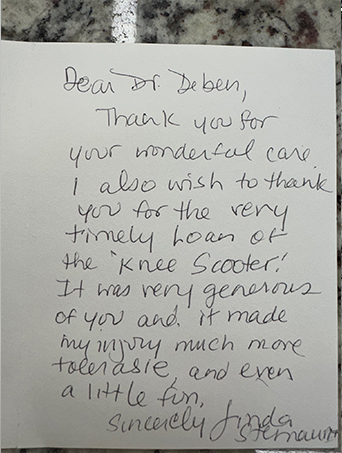 Dear Dr. Deben,
Thank you for
your wonderful care.
I also wish to thank
you for the very
timely Loan of
the "Knee Scooter."
It was very generous
of you and it made
my injury much more
tolerable, and even
a little fun.
Sincerely Linda